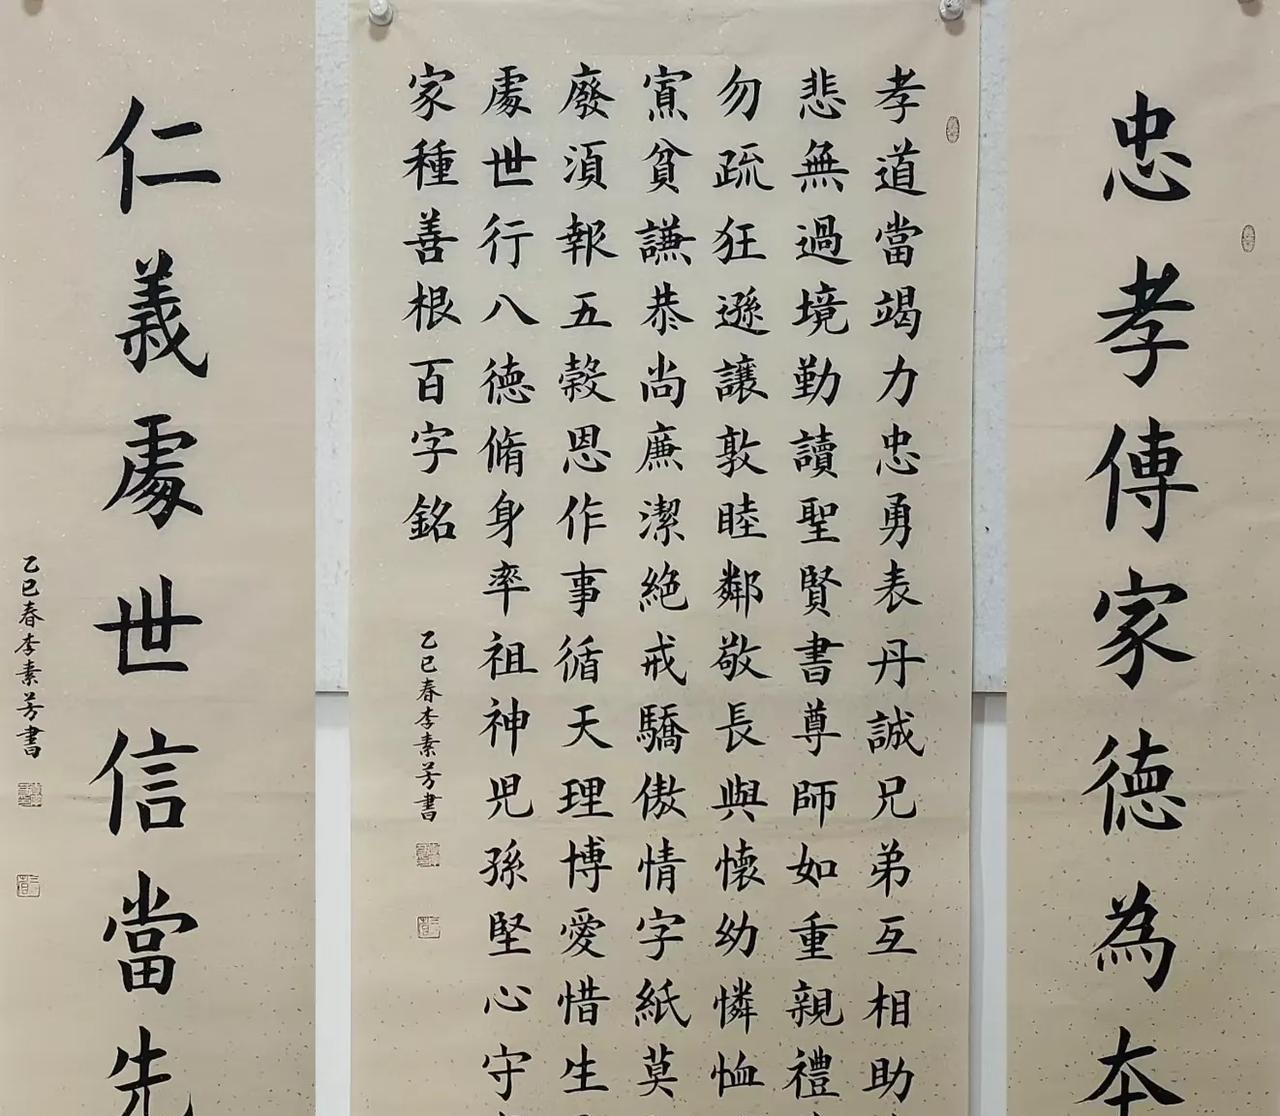 忠孝傳家德為本
孝道當竭力忠勇表丹誠兄弟互相助
悲無過境勤讀聖賢書尊師如重親禮
勿疏狂遜讓敦睦鄰敬長與懷幼憐恤
寡貧謙恭尚廉潔絕戒驕傲情字紙莫
廢須報五穀恩作事循天理博愛惜生
處世行八德脩身率祖神兒孫堅心守
家種善根百字銘
乙巳春李素芳書
仁義處世信當先
乙巳春李素芳書